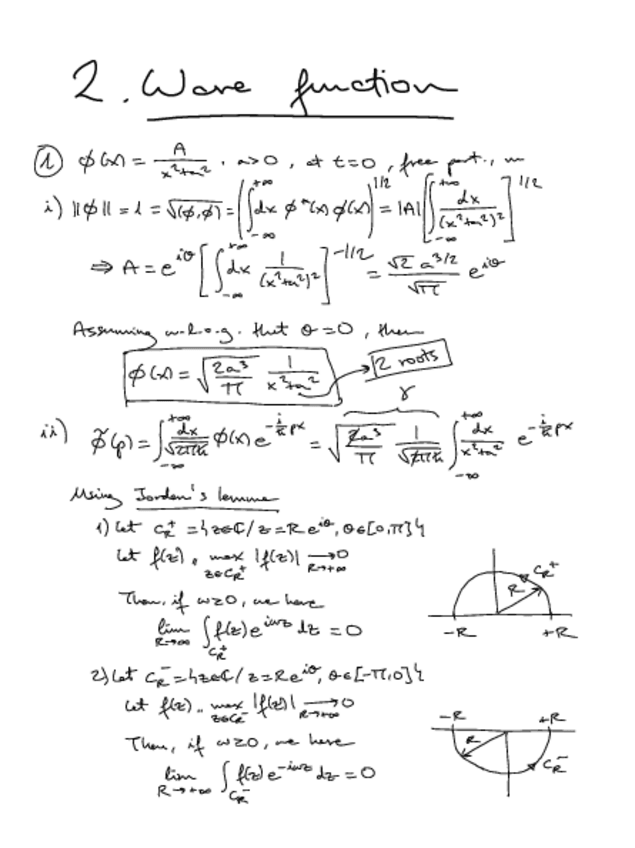 2. Wave function
① φ(x) = A/(x²+a²), a>0, at t=0, free part., m
i) ||φ|| = 1 = √(φ,φ) = (∫_{-∞}^{+∞} dx φ*(x) φ(x))^{1/2} = |A| [∫_{-∞}^{+∞} dx/(x²+a²)²]^{1/2}
⇒ A = e^{iθ} [∫_{-∞}^{+∞} dx 1/(x²+a²)²]^{-1/2} = √2 a^{3/2}/√π e^{iθ}
Assuming w.l.o.g. that θ=0, then
φ(x) = √(2a³/π) 1/(x²+a²) → 2 roots
γ
ii) φ̃(p) = ∫_{-∞}^{+∞} dx/√(2πħ) φ(x) e^{-i/ħ px} = √(2a³/π) 1/√(2πħ) ∫_{-∞}^{+∞} dx/(x²+a²) e^{-i/ħ px}
Using Jordan's lemma
1) Let C_R^+ = {z∈ℂ / z=Re^{iθ}, θ∈[0,π]}
Let f(z), max_{z∈C_R^+} |f(z)| →_{R→+∞} 0
Then, if w≥0, we have
lim_{R→∞} ∫_{C_R^+} f(z) e^{iwz} dz = 0
R C_R^+
-R +R
2) Let C_R^- = {z∈ℂ / z=Re^{iθ}, θ∈[-π,0]}
Let f(z), max_{z∈C_R^-} |f(z)| →_{R→+∞} 0
Then, if w≥0, we have
lim_{R→+∞} ∫_{C_R^-} f(z) e^{-iwz} dz = 0
-R +R
R C_R^-